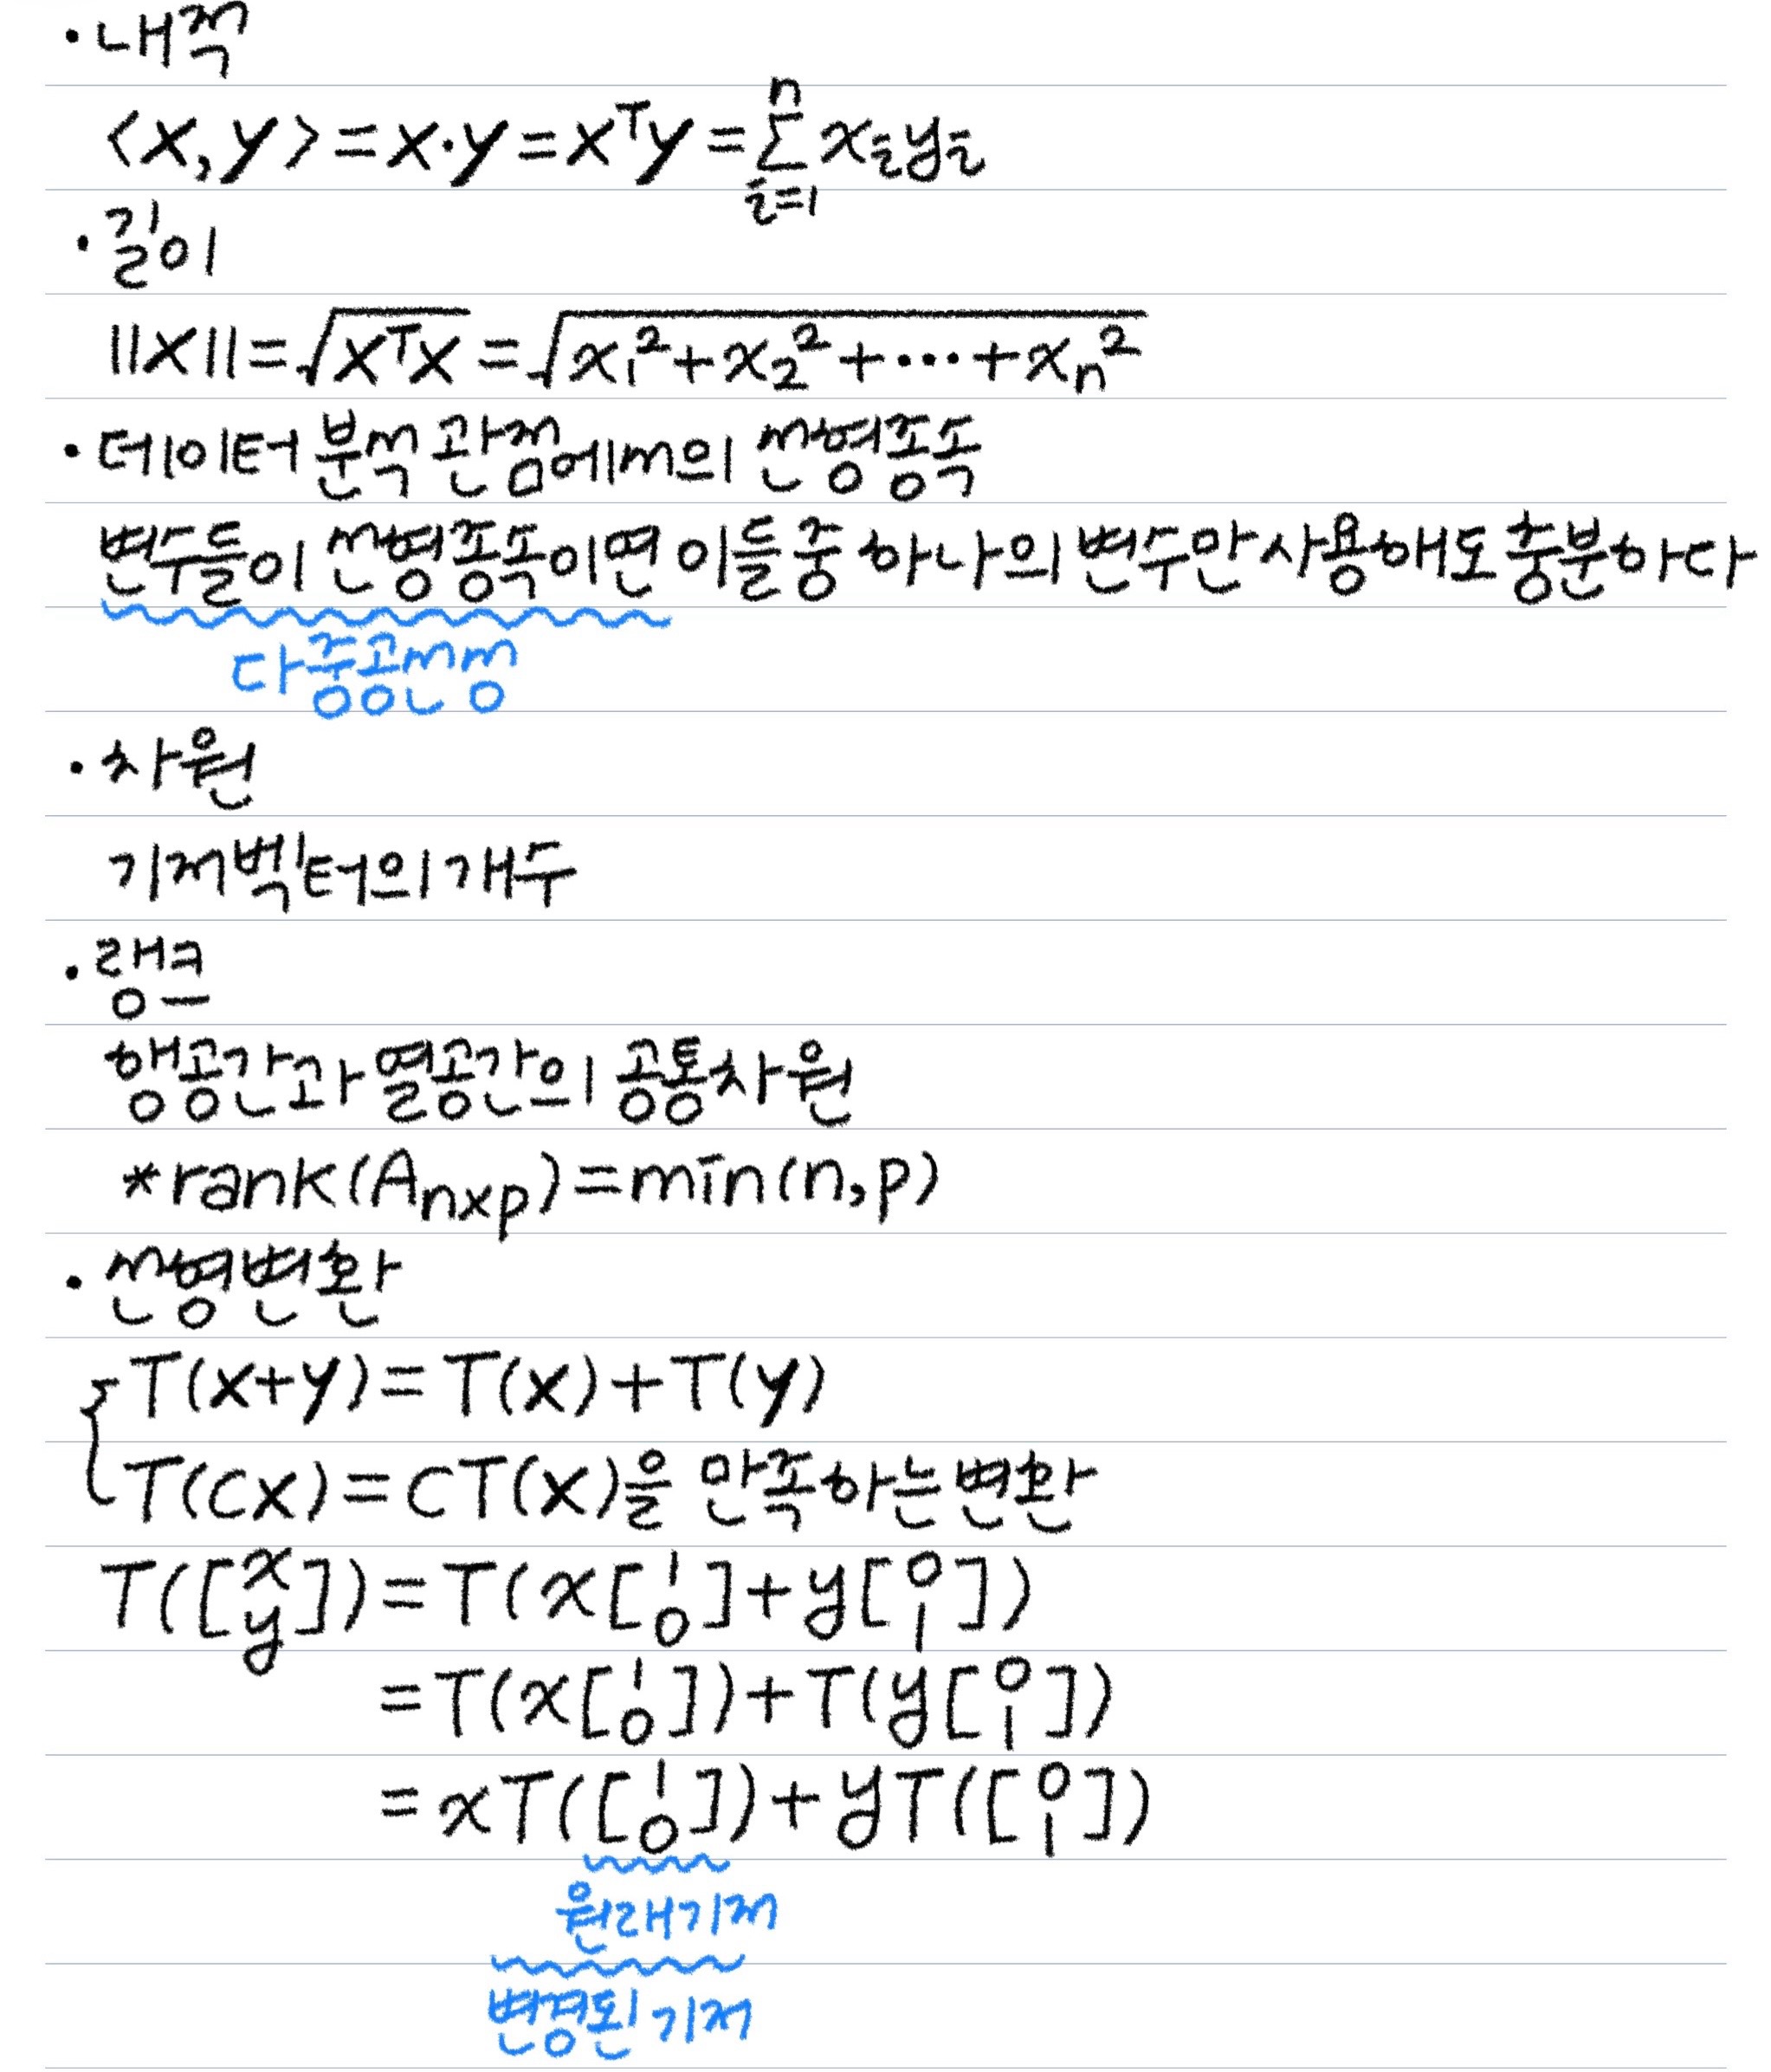 · 내적
<x, y> = x·y = xᵀy = Σⁿᵢ₌₁ xᵢyᵢ
· 길이
||x|| = √(xᵀx) = √(x₁² + x₂² + ··· + xₙ²)
· 데이터 분석 관점에서의 선형종속
변수들이 선형종속이면 이들 중 하나의 변수만 사용해도 충분하다
다중공선성
· 차원
기저벡터의 개수
· 랭크
행공간과 열공간의 공통차원
*rank(Aₙₓₚ) = min(n, p)
· 선형변환
{ T(x+y) = T(x) + T(y)
T(cx) = cT(x)을 만족하는 변환
T([x y]) = T(x[1 0] + y[0 1])
= T(x[1 0]) + T(y[0 1])
= xT([1 0]) + yT([0 1])
원래기저
변경된 기저